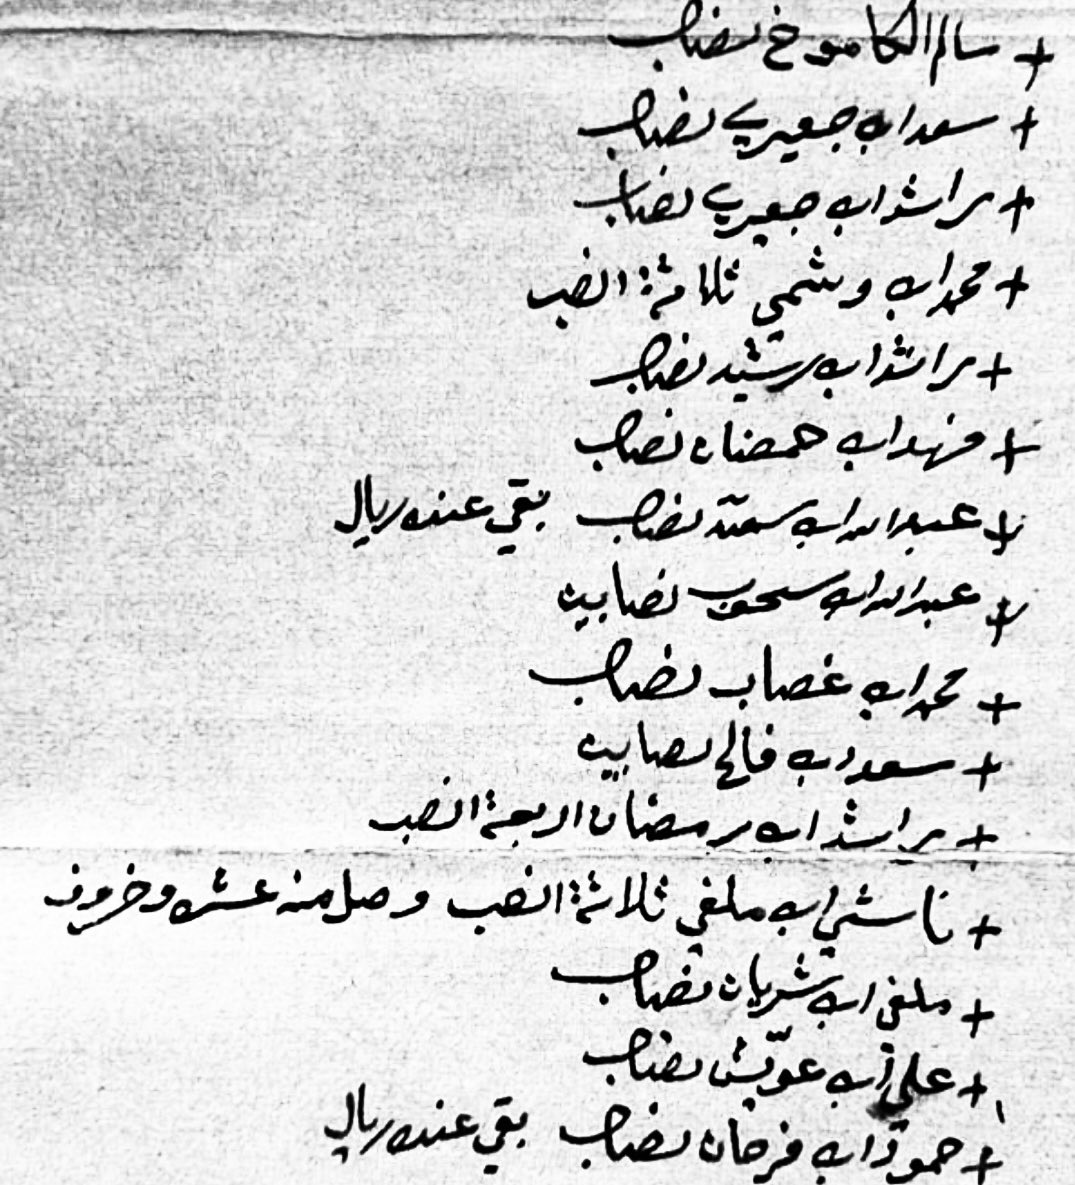 + سالم الكاموخ نصاب
+ سعد ابن جعيري نصاب
+ راشد ابن جعيري نصاب
+ محمد ابن وشمي ثلاثة انصب
+ راشد ابن رشيد نصاب
+ فهد ابن حمضان نصاب
+ عبدالله ابن سمته نصاب بقي عنده ريال
+ عبدالله ابن سحوب نصابين
+ محمد ابن غصاب نصاب
+ سعد ابن فالح نصابين
+ راشد ابن رمضان اربعة انصب
+ ناشي ابن ملفي ثلاثة انصب وصل منه عشره وخروف
+ ملفي ابن شريان نصاب
+ علي ابن عويّش نصاب
+ حمود ابن فرحان نصاب بقي عنده ريال